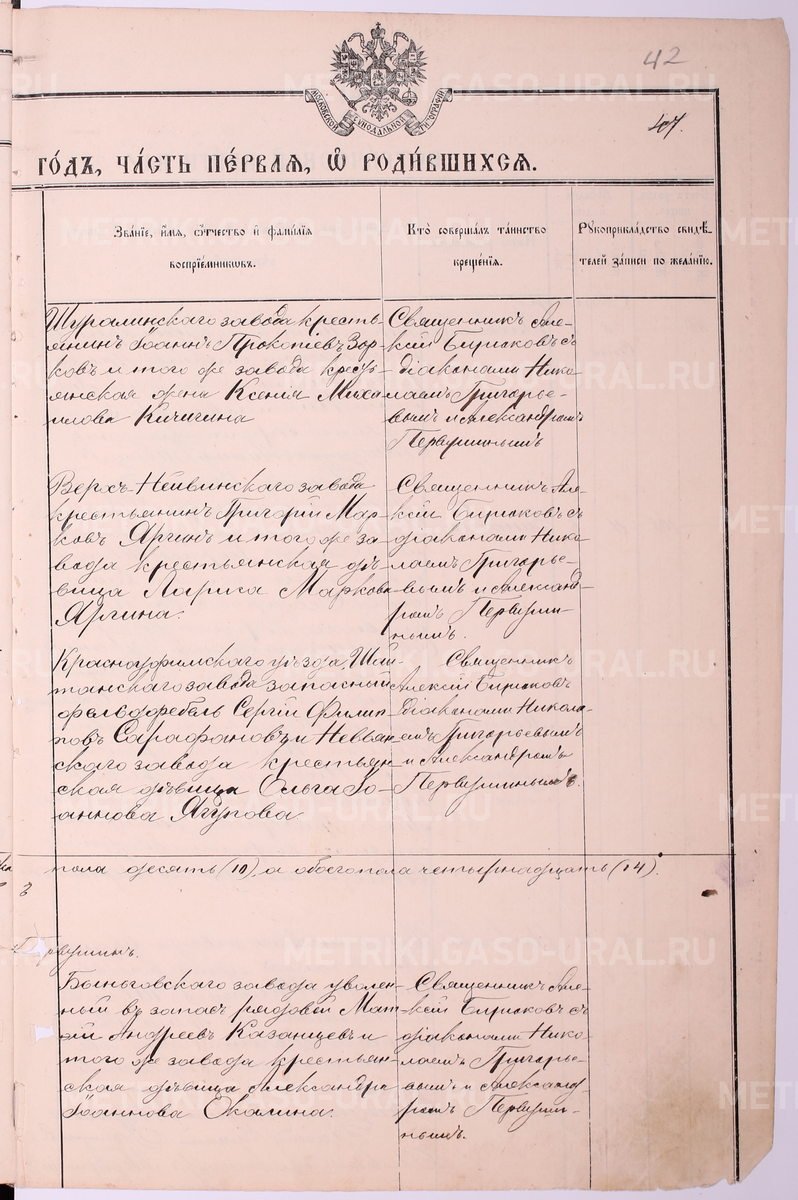 42
47.
МОСКОВСКОЙ СѴНОДАЛЬНОЙ ТИПОГРАФІИ
ГО́ДЪ, ЧА́СТЬ ПЕ́РВАЯ, Ѽ РОДИ́ВШИХСЯ.
Зва́нїе, и҆́мя, ѻ҆́тчество и҆ фами́лїя
воспрїе́мникѡвъ.
Кто̀ соверша́лъ та́инство
креще́нїя.
Рꙋкоприкла́дство свидѣ́-
телей за́писи по жела́нїю.
Шуралинскаго завода кресть-
янинъ Іоаннъ Прокопіевъ Зор-
ковъ и того же завода кресть-
янская жена Ксенія Миха-
илова Кичигина
Священникъ Але-
ксій Бирюковъ съ
діаконами Нико-
лаемъ Григорье-
вымъ и Александромъ
Первушинымъ
Верхъ-Нейвинскаго завода
крестьянинъ Григорій Мар-
ковъ Яргинъ и того же за-
вода крестьянская дѣ-
вица Лариса Маркова
Яргина.
Священникъ Але-
ксій Бирюковъ съ
діаконами Нико-
лаемъ Григорье-
вымъ и Александ-
ромъ Первуши-
нымъ.
Красноуфимскаго уѣзда, Шай-
танскаго завода запасный
фельдфебель Сергій Филип-
повъ Сарафановъ и Невьян-
скаго завода крестьян-
ская дѣвица Ольга Іо-
аннова Ягупова
Священникъ
Алексій Бирюковъ
діаконами Никола-
емъ Григорьевымъ
и Александромъ
Первушинымъ.
пола десять (10), а обоего пола четырнадцать (14).
Первушинъ.
Быньговскаго завода уволен-
ный въ запасъ рядовой Мат-
ѳій Андреевъ Казанцевъ и
того же завода крестьян-
ская дѣвица Александра
Іоаннова Окалина.
Священникъ Але-
ксій Бирюковъ съ
діаконами Нико-
лаемъ Григорье-
вымъ и Александ-
ромъ Первуши-
нымъ.
METRIKI.GASO-URAL.RU